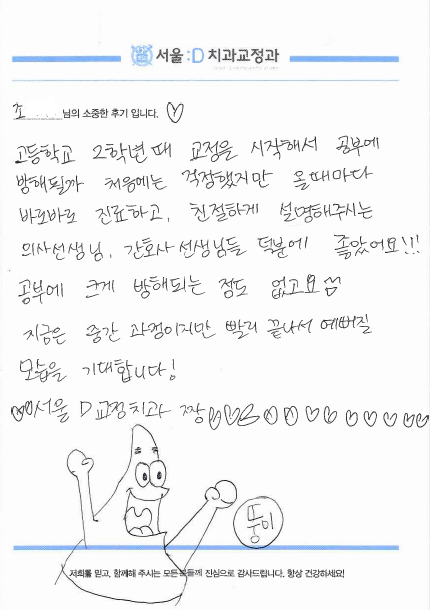 서울:D 치과교정과
조 님의 소중한 후기 입니다.
고등학교 2학년 때 교정을 시작해서 공부에
방해될까 처음에는 걱정했지만 올때마다
바로바로 진료하고, 친절하게 설명해주시는
의사선생님, 간호사 선생님들 덕분에 좋았어요!!!
공부에 크게 방해되는 점도 없고요
지금은 중간 과정이지만 빨리 끝나서 예뻐질
모습을 기대합니다!
서울 D 교정치과 짱
뚱이
저희를 믿고, 함께해 주시는 모든 분들께 진심으로 감사드립니다. 항상 건강하세요!